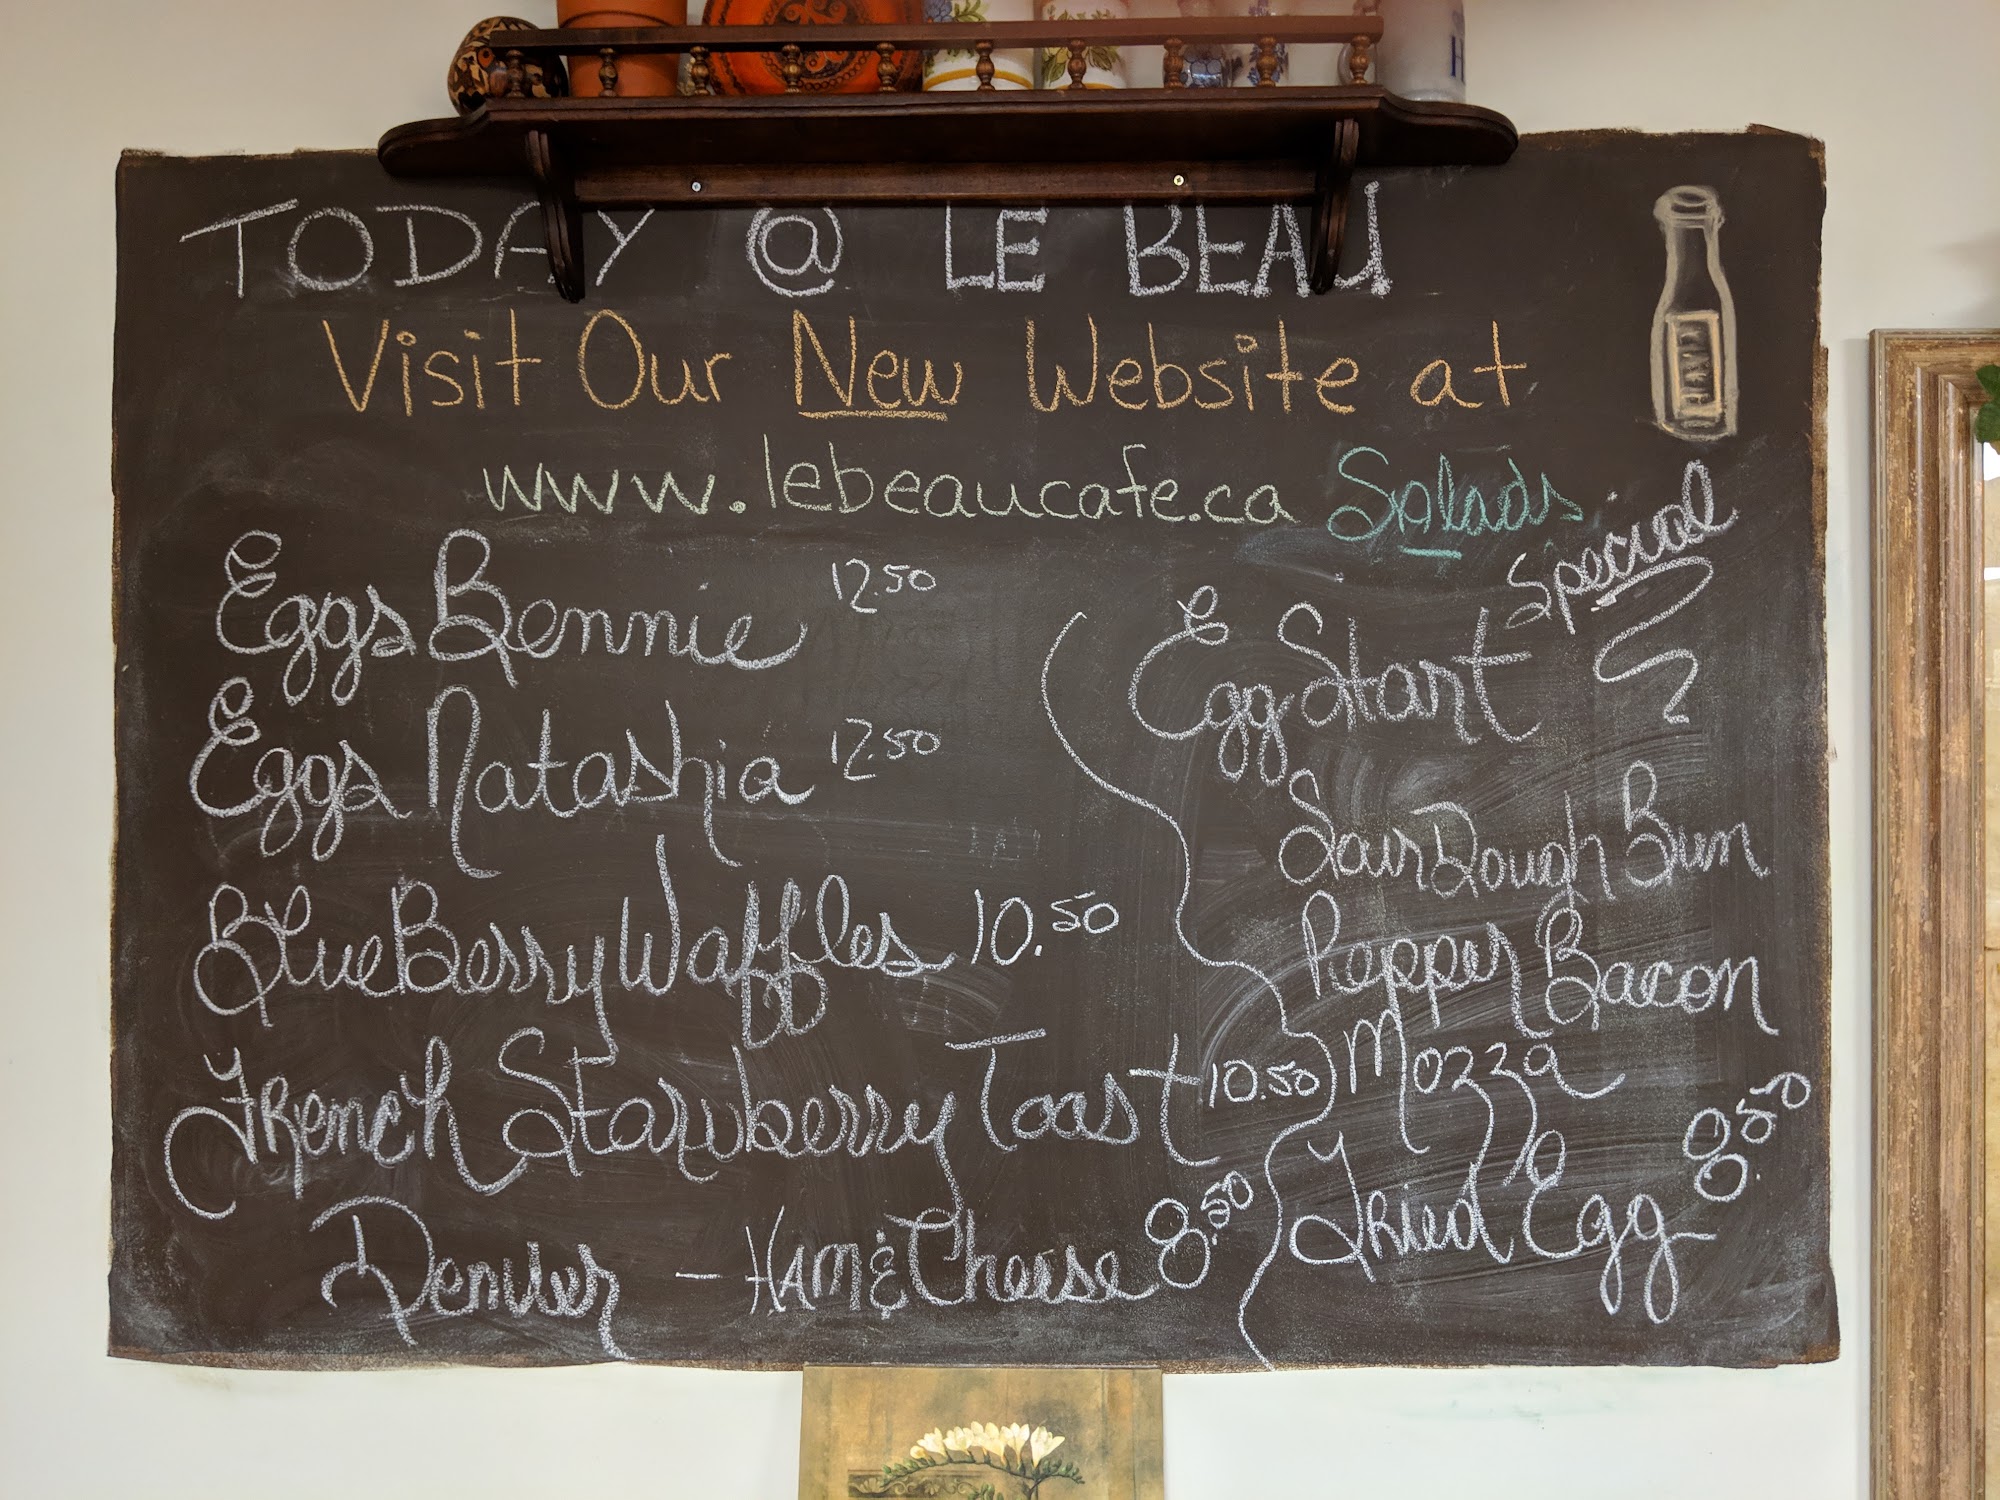 TODAY @ LE BEAU
Visit Our New Website at
www.lebeaucafe.ca Salads
Eggs Bennie 12.50
Eggs Natashia 12.50
BlueBerry Waffles 10.50
French Starwberry Toast 10.50
Denver - HAM & Cheese 8.50
Special
Egg Start
SourDough Bun
Pepper Bacon
Mozza
Fried Egg 8.50